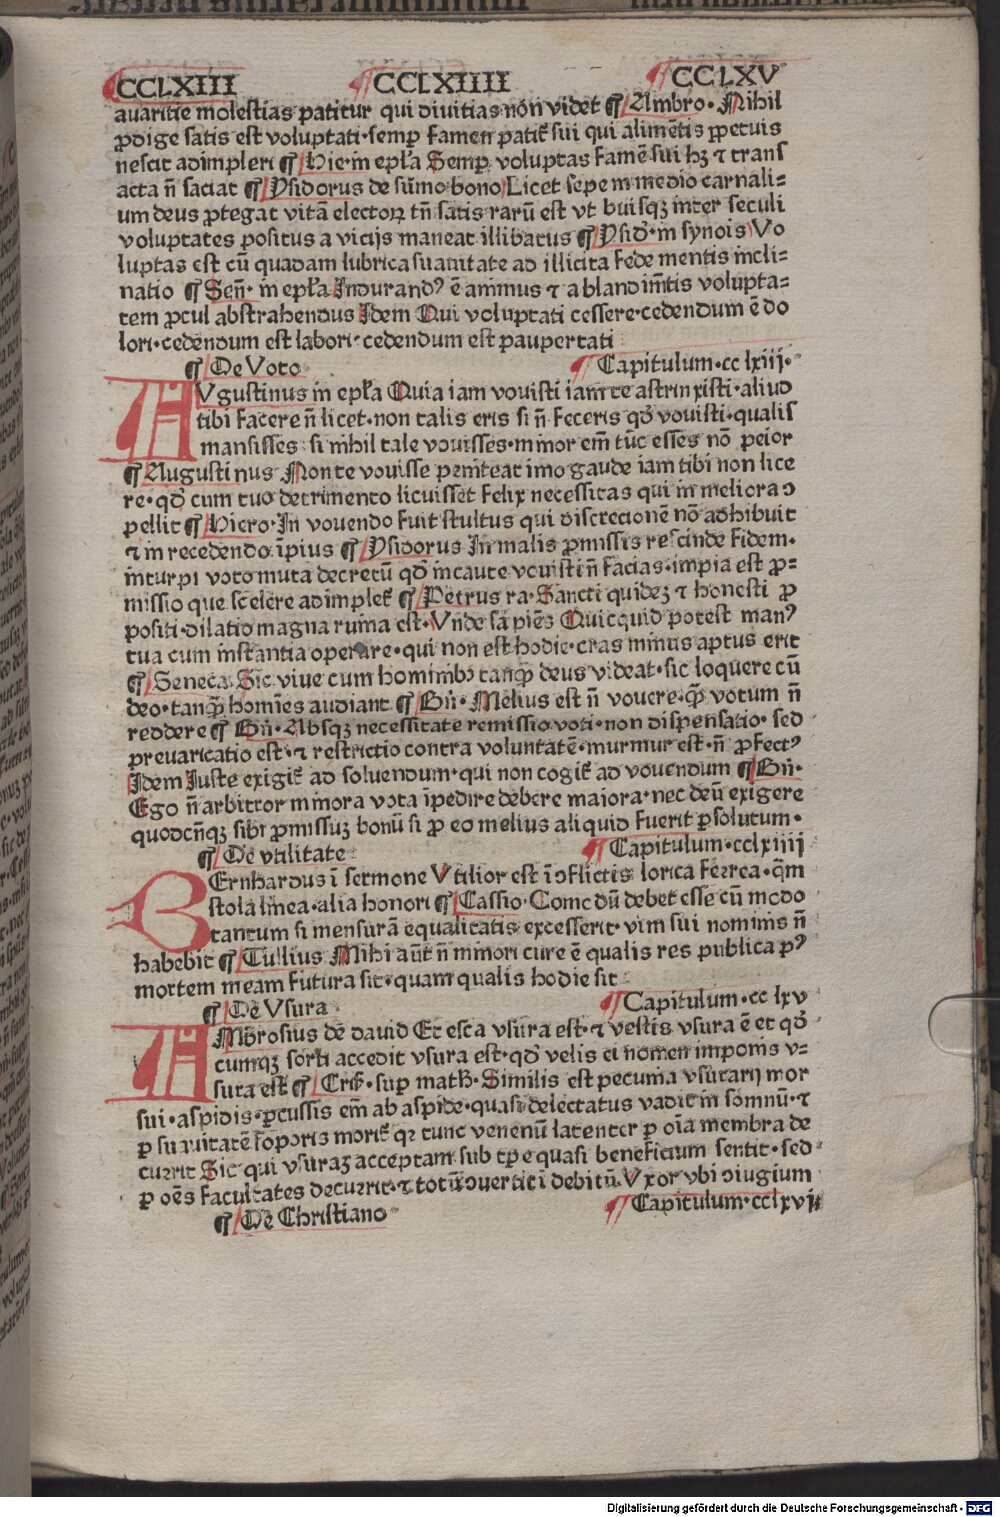 CCLXIII CCLXIIII CCLXV
avaritie molestias patitur qui diuitias non videt ¶ Ambro· Nihil
ꝓdige satis est voluptati·semꝑ famen patit᷑ sui qui alimētis ꝑpetuis
nescit adimpleri ¶ Hie·in epła Semꝑ voluptas famē sui hꝫ ⁊ trans
acta n̄ saciat ¶ Ysidorus de sūmo bono Licet sepe in medio carnali=
um deus ꝓtegat vitā electoꝝ tn̄ satis rarū est vt huiusqꝫ inter seculi
voluptates positus a vicijs maneat illibatus ¶ Ysid̄· in synois Vo
luptas est cū quadam lubrica suauitate ad illicita fede mentis incli=
natio ¶ Sen̄· in epła Indurandꝰ ē animus ⁊ a blandimtis volupta=
tem ꝓcul abstrahendus Idem Qui voluptati cessere·cedendum ē do
lori·cedendum est labori·cedendum est paupertati
¶ De Voto Capitulum·cc lxiii·
AVgustinus in epła Quia iam vouisti iam te astrinxisti·aliud
tibi facere n̄ licet·non talis eris si n̄ feceris qd̄ vouisti·qualis
mansisses si nihil tale vouisses·minor em̄ tūc esses nō peior
¶ Augustinus Non te vouisse peniteat imo gaude iam tibi non lice
re·qd̄ cum tuo detrimento licuisset Felix necessitas qui in meliora ↄ
pellit ¶ Hiero·In vovendo fuit stultus qui discrecionē nō adhibuit
⁊ in recedendo īpius ¶ Ysidorus In malis ꝓmissis rescinde fidem·
in turpi voto muta decretū qd̄ incaute vouisti n̄ facias·impia est ꝓ=
missio que scelere adimplet᷑ ¶ Petrus ra· Sancti quidez ⁊ honesti ꝓ
positi·dilatio magna ruina est·Vnde sapiēs Quicquid potest manꝰ
tua cum instantia operare·qui non est hodie·cras minus aptus erit
¶ Seneca Sic viue cum hominibꝫ tanqꝫ deus videat·sic loquere cū
deo·tanqꝫ homies audiant ¶ Bn̄· Melius est n̄ vouere·qꝫ votum n̄
reddere ¶ Bn̄· Absqꝫ necessitate remissio voti·non dispensatio· sed
preuaricatio est·⁊ restrictio contra voluntatē·murmur est·n̄ ꝓfectꝰ
Idem Iuste exigit᷑ ad soluendum·qui non cogit᷑ ad vouendum ¶ Bn̄·
Ego n̄ arbitror minora vota īpedire debere maiora·nec deū exigere
quodcn̄qꝫ sibi ꝓmissuꝫ bonū si ꝓ eo melius aliquid fuerit ꝑsolutum·
¶ De vtilitate Capitulum·cclxiiii
BErnhardus ī sermone Vtilior est ī ↄflictis lorica ferrea·qm̄
stola linea·alia honori ¶ Cassio· Comodū debet esse cū modo
tantum si mensurā equalitatis excesserit·vim sui nominis n̄
habebit ¶ Tullius Mihi aūt n̄ minori cure ē qualis res publica pꝰ
mortem meam futura sit·quam qualis hodie sit
¶ De Vsura Capitulum·cc lxv
AMbrosius de dauid Et esca vsura est·⁊ vestis vsura ē et qd̄
cumqꝫ sorti accedit vsura est·qd̄ velis ei nomen imponis v=
sura est ¶ Cris̄·suꝑ math̄· Similis est pecunia vsurarij mor
sui·aspidis·ꝑcussis em̄ ab aspide·quasi delectatus vadit in somnū·⁊
ꝑ suauitatē soporis morit᷑ qꝛ tunc venenū latenter ꝑ oīa membra de
currit Sic qui vsuraꝫ acceptam sub tꝑe quasi beneficium sentit·sed
ꝑ oēs facultates decurrit·⁊ totū ↄuertit ī debitū· Vxor vbi ↄiugium
¶ De Christiano Capitulum·cclxvj
Digitalisierung gefördert durch die Deutsche Forschungsgemeinschaft · DFG